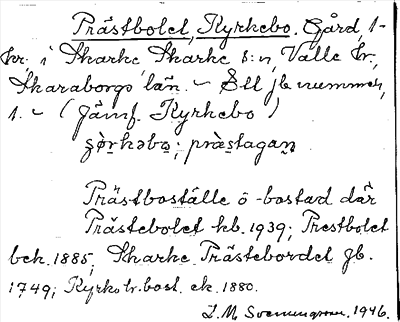 Prästbolet, Kyrkebo. Gård, 1-
hr. i Skarke Skarke s:n, Valle hr,
Skaraborgs län. - Ett jb nummer,
1. - (Jämf. Kyrkebo)
prästagan
Prästboställe o -bostad där
Prästebolet hb. 1939; Prestbolet
bek. 1885; Skarke Prästebordet jb.
1749; Kyrkohr.bost. ek. 1880.
1946.